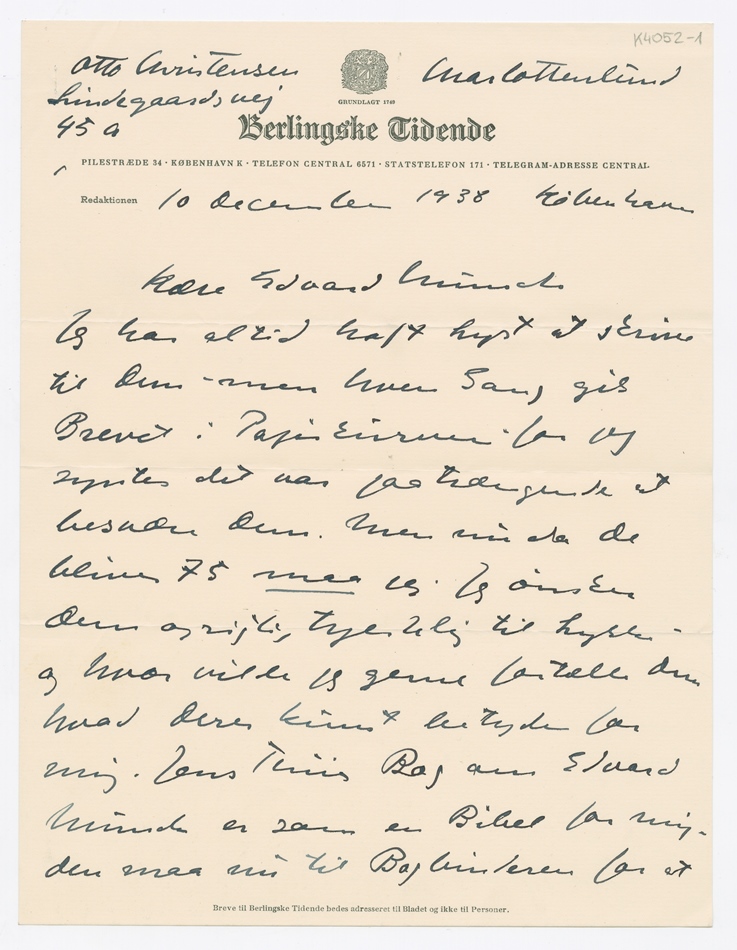 K4052-1
Otto Christensen
Charlottenlund
Lindegaardsvej
45 a
GRUNDLAGT 1749
Berlingske Tidende
PILESTRÆDE 34 · KØBENHAVN K · TELEFON CENTRAL 6571 · STATSTELEFON 171 · TELEGRAM-ADRESSE CENTRAL
Redaktionen 10 December 1938 København
Kære Edvard Munch
Jeg har altid haft lyst at skrive
til Dem - men hver Gang gik
Brevet i Papirkurven - for jeg
syntes det var paatrængende at
besvære Dem. Men nu da De
bliver 75 maa jeg. Jeg ønsker
Dem oprigtig, hjertelig til Lykke -
og hvor vilde jeg gerne fortælle Dem
hvad Deres Kunst betyder for
mig. Jens Thiis Bog om Edvard
Munch er som en Bibel for mig -
den maa nu til Bogbinderen for at
Breve til Berlingske Tidende bedes adresseret til Bladet og ikke til Personer.